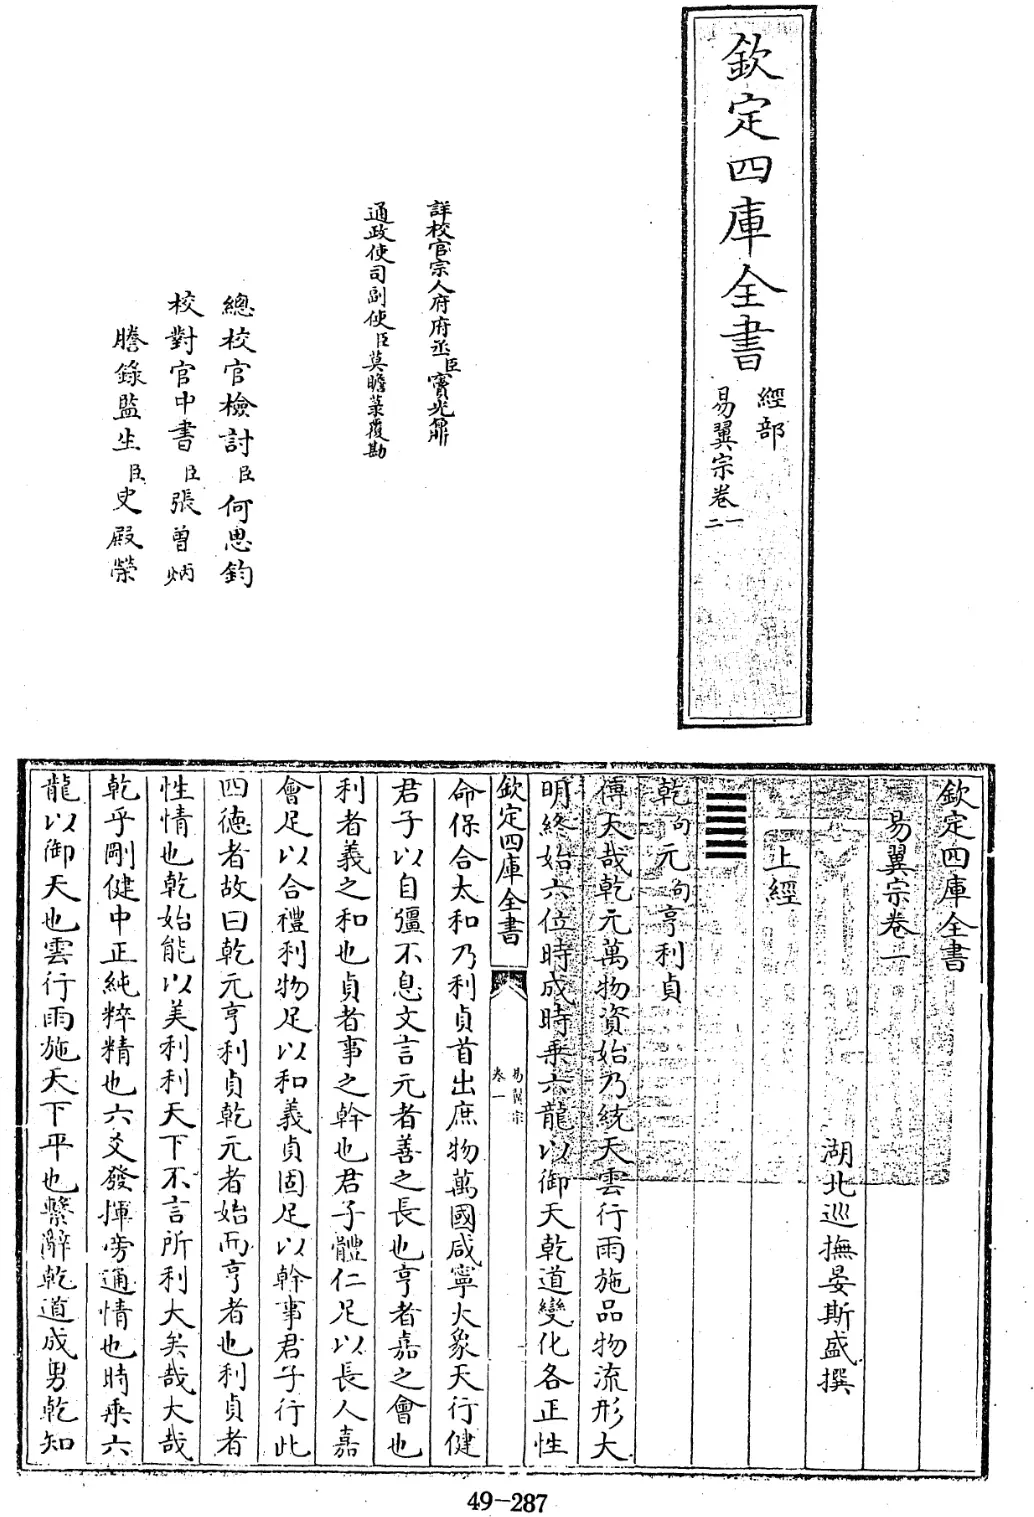 欽定四庫全書
經部
易翼宗卷一
二
詳校官宗人府府丞臣竇光鼐
通政使司副使臣莫瞻菉覆勘
總校官檢討臣何思鈞
校對官中書臣張曾炳
謄錄監生臣史殿榮
欽定四庫全書
易翼宗卷一
湖北巡撫晏斯盛撰
上經
䷀
乾句元句亨利貞
傳大哉乾元萬物資始乃統天雲行雨施品物流形大
明終始六位時成時乗六龍以御天乾道變化各正性
欽定四庫全書
易翼宗
卷一
命保合太和乃利貞首出庶物萬國咸寧大象天行健
君子以自彊不息文言元者善之長也亨者嘉之會也
利者義之和也貞者事之幹也君子體仁足以長人嘉
會足以合禮利物足以和義貞固足以幹事君子行此
四德者故曰乾元亨利貞乾元者始而亨者也利貞者
性情也乾始能以美利利天下不言所利大矣哉大哉
乾乎剛健中正純粹精也六爻發揮旁通情也時乗六
龍以御天也雲行雨施天下平也繫辭乾道成男乾知
49-287